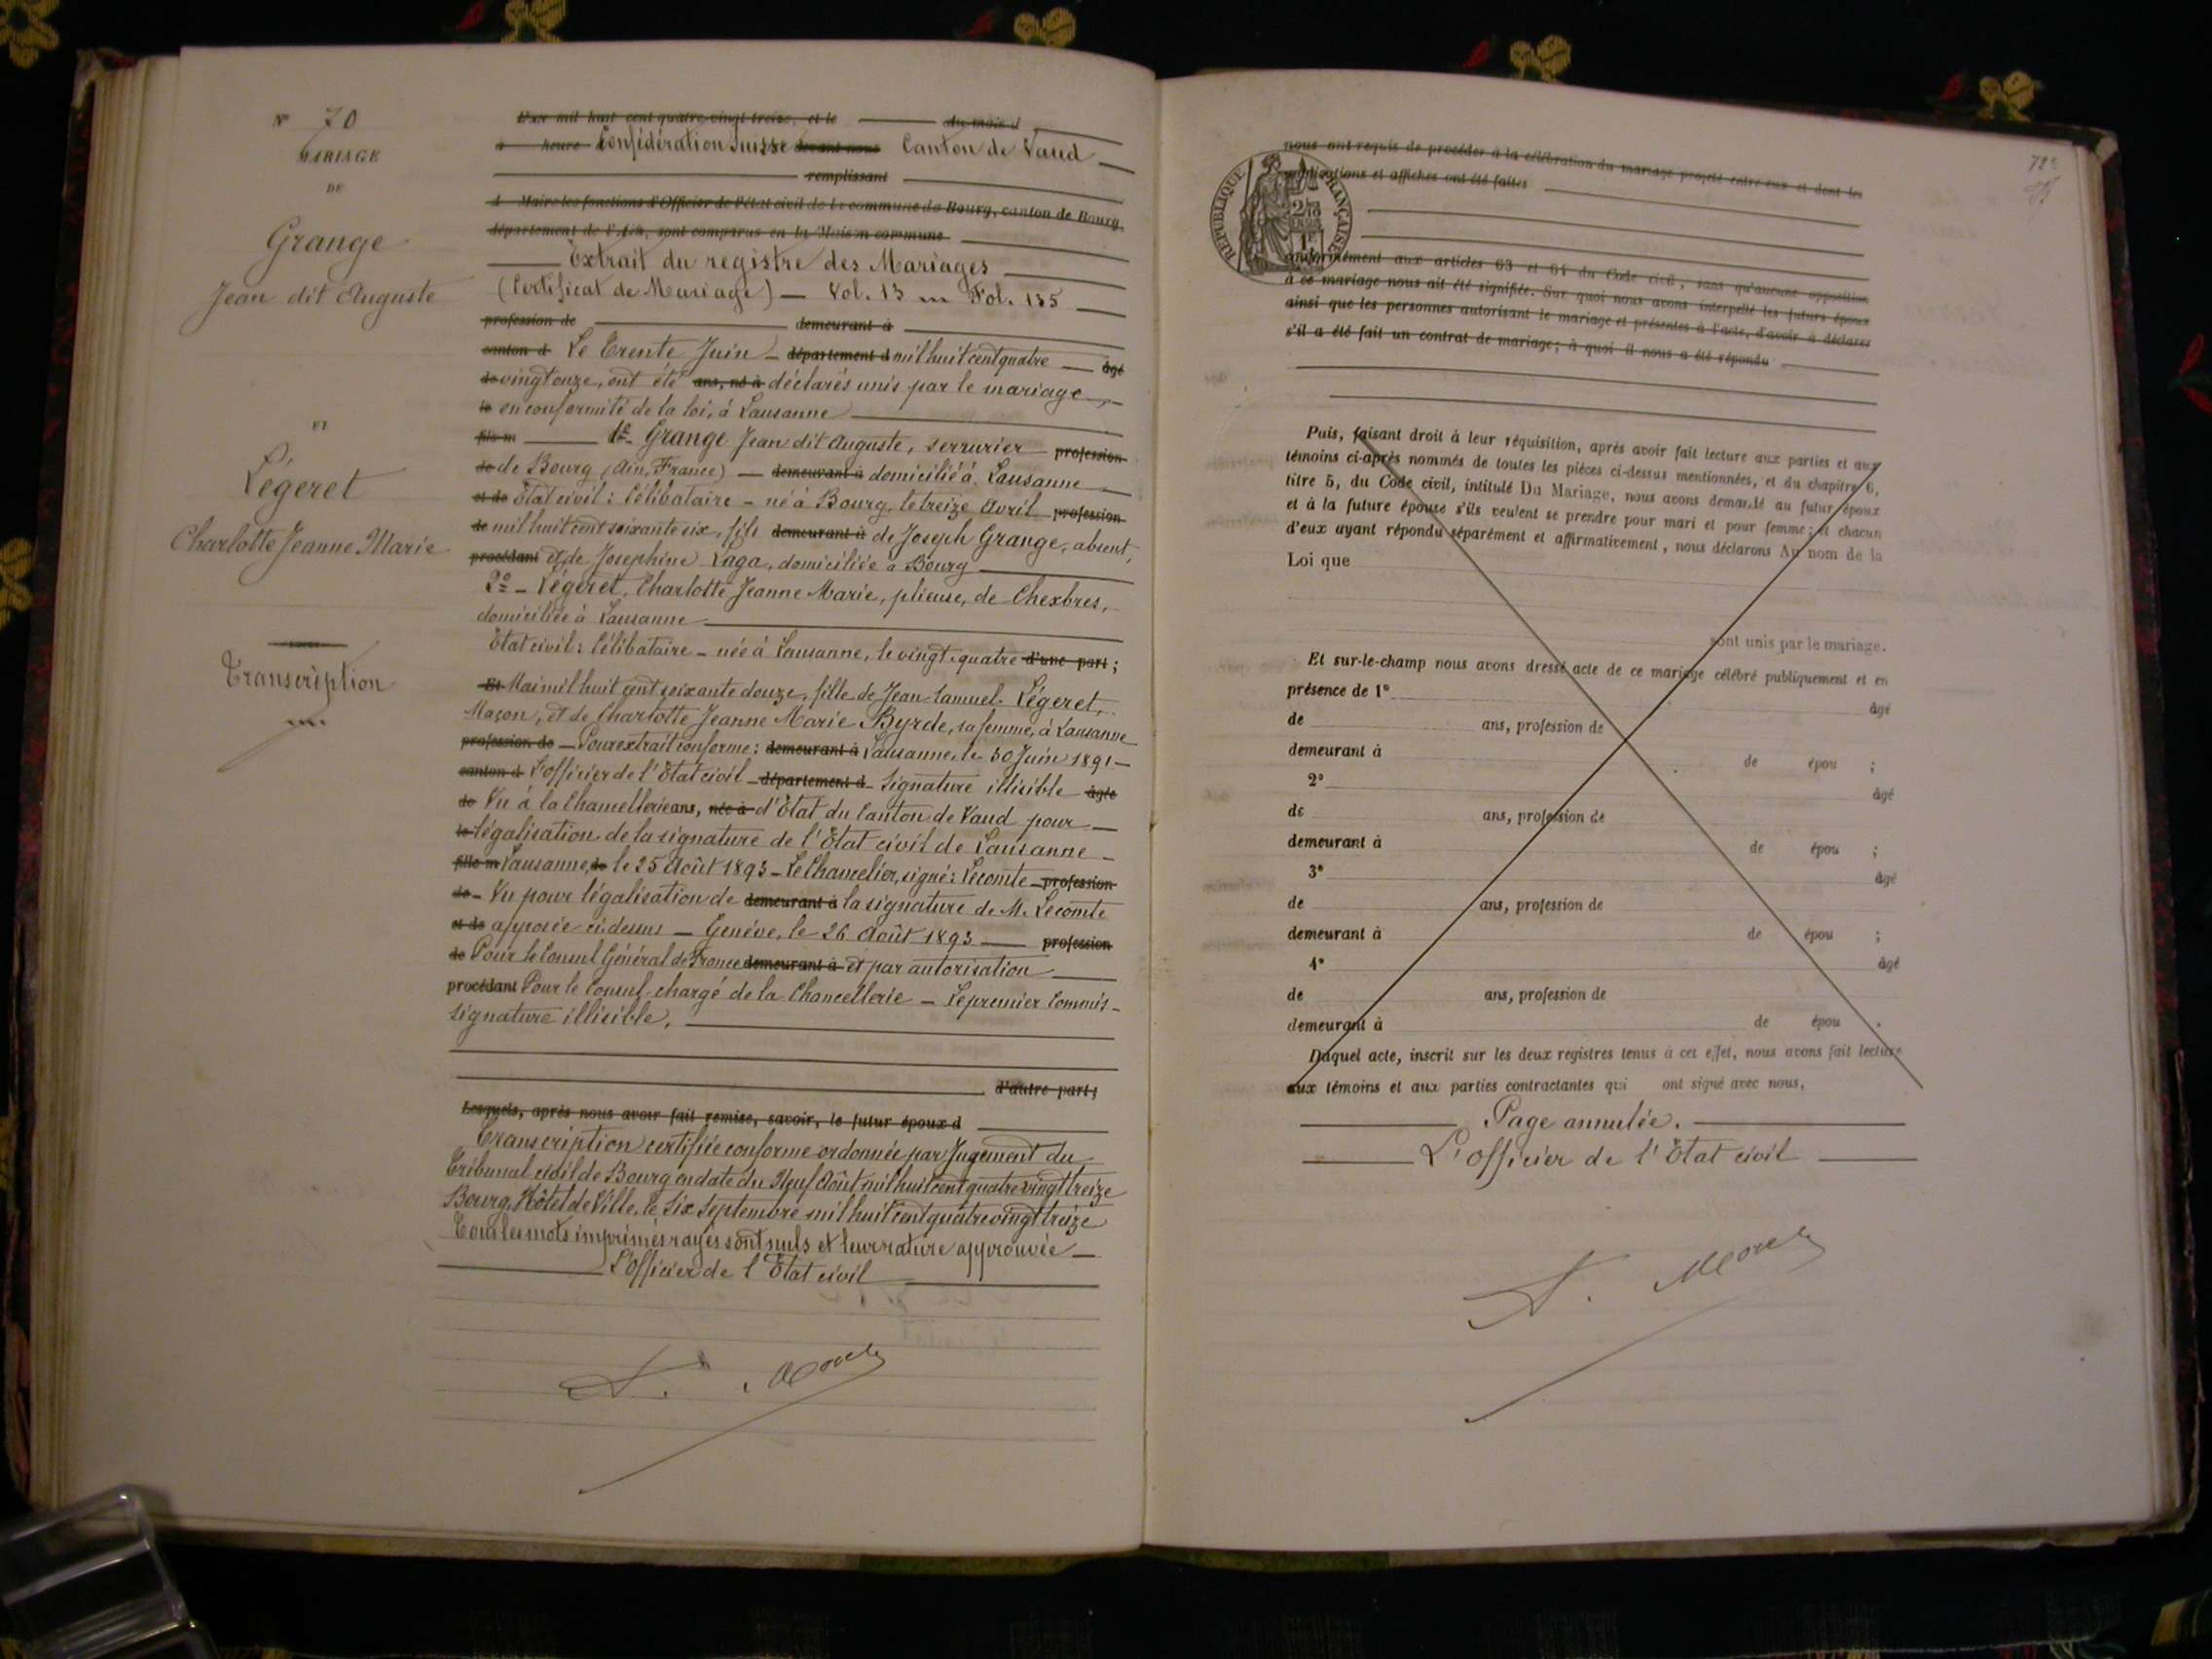 N° 70
MARIAGE
DE
Grange
Jean dit Auguste
ET
Légeret
Charlotte Jeanne Marie
Transcription
L'an mil huit cent quatre-vingt-treize, et le du mois d
à heure Confédération Suisse devant nous Canton de Vaud
remplissant
d Maire les fonctions d'Officier de l'état civil de la commune de Bourg, canton de Bourg,
département de l'Ain, sont comparus en la Maison commune
Extrait du registre des Mariages
(Certificat de Mariage) — Vol. 13 — Fol. 135
profession de demeurant à
canton d Le Trente Juin — département d mil huit cent quatre — âgé
de vingt onze, ont été ans, né à déclarés unis par le mariage,
le en conformité de la loi, à Lausanne
fils m 1° Grange Jean dit Auguste, serrurier profession
de de Bourg (Ain, France) — demeurant à domicilié à Lausanne
et de État civil : Célibataire — né à Bourg, le treize Avril profession
de mil huit cent soixante six, fils demeurant à de Joseph Grange, absent,
procédant et de Josephine Vaga, domiciliée à Bourg
2° — Légeret, Charlotte Jeanne Marie, plieuse, de Chexbres,
domiciliée à Lausanne
État civil : Célibataire — née à Lausanne, le vingt-quatre d'une part ;
Et Mai mil huit cent soixante douze, fille de Jean Samuel Légeret,
Maçon, et de Charlotte Jeanne Marie Byrde, sa femme, à Lausanne
profession de — Pour extrait conforme : demeurant à Lausanne, le 30 Juin 1891 —
canton d L'officier de l'État civil — département d Signature illisible âgée
de Vu à la Chancellerie ans, née à d'État du Canton de Vaud pour
le légalisation de la signature de l'État civil de Lausanne
fille m Lausanne, de le 25 Août 1893 — Le Chancelier, signé : Lecomte profession
de — Vu pour légalisation de demeurant à la signature de M. Lecomte
et de apposée ci-dessus — Genève, le 26 Août 1893 — profession
de Pour le Consul Général de France demeurant à et par autorisation
procédant Pour le Consul chargé de la Chancellerie — Le premier Commis —
signature illisible.
d'autre part ;
Lesquels, après nous avoir fait remise, savoir, le futur époux d
Transcription certifiée conforme ordonnée par Jugement du
Tribunal civil de Bourg en date du Neuf Août mil huit cent quatre vingt treize
Bourg, Hôtel de Ville, le Six Septembre mil huit cent quatre vingt treize
Tous les mots imprimés rayés sont nuls et leur rature approuvée —
L'officier de l'État civil
nous ont requis de procéder à la célébration du mariage projeté entre eux et dont les
publications et affiches ont été faites
RÉPUBLIQUE FRANÇAISE
conformément aux articles 63 et 64 du Code civil, sans qu'aucune opposition
à ce mariage nous ait été signifiée. Sur quoi nous avons interpellé les futurs époux
ainsi que les personnes autorisant le mariage et présentes à l'acte, d'avoir à déclarer
s'il a été fait un contrat de mariage ; à quoi il nous a été répondu
Puis, faisant droit à leur réquisition, après avoir fait lecture aux parties et aux
témoins ci-après nommés de toutes les pièces ci-dessus mentionnées, et du chapitre 6,
titre 5, du Code civil, intitulé Du Mariage, nous avons demandé au futur époux
et à la future épouse s'ils veulent se prendre pour mari et pour femme ; et chacun
d'eux ayant répondu séparément et affirmativement, nous déclarons Au nom de la
Loi que
sont unis par le mariage.
Et sur-le-champ nous avons dressé acte de ce mariage célébré publiquement et en
présence de 1° âgé
de ans, profession de
demeurant à de épou ;
2° âgé
de ans, profession de
demeurant à de épou ;
3° âgé
de ans, profession de
demeurant à de épou ;
4° âgé
de ans, profession de
demeurant à de épou .
Duquel acte, inscrit sur les deux registres tenus à cet effet, nous avons fait lecture
aux témoins et aux parties contractantes qui ont signé avec nous,
Page annulée.
L'officier de l'État civil